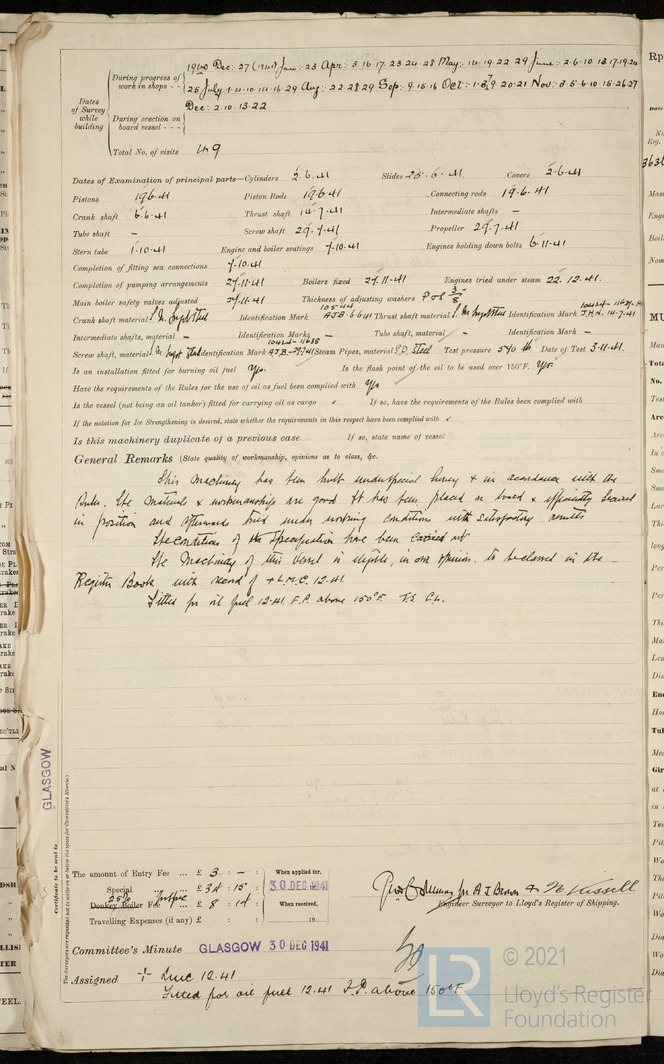 Dates of Survey while building
During progress of work in shops - -
1940 Dec: 27 (1941) Jan: 23 Apr: 3.16.17.23.24.28 May: 14.19.22.29 June: 2.6.10.13.17.19.24
25 July 1.4.10.14.16.29 Aug: 22.28.29 Sep: 9.15.16 Oct: 1.3.7.9.20.21 Nov: 3.5.6.10.15.26.27
Dec: 2.10.13.22
During erection on board vessel - - -
Total No. of visits 49
Dates of Examination of principal parts—Cylinders 2.6.41 Slides 25.6.41. Covers 2.6.41
Pistons 19.6.41 Piston Rods 19.6.41 Connecting rods 19.6.41
Crank shaft 6.6.41 Thrust shaft 14.7.41 Intermediate shafts –
Tube shaft – Screw shaft 29.7.41 Propeller 29.7.41
Stern tube 1.10.41 Engine and boiler seatings 7.10.41 Engines holding down bolts 6.11.41
Completion of fitting sea connections 7.10.41
Completion of pumping arrangements 27.11.41 Boilers fixed 27.11.41 Engines tried under steam 22.12.41.
Main boiler safety valves adjusted 27.11.41 Thickness of adjusting washers P & S 3/8
Crank shaft material Identification Mark AJB.6.6.41 Thrust shaft material Identification Mark J.H.N. 14.7.41
Intermediate shafts, material – Identification Marks – Tube shaft, material Identification Mark –
Screw shaft, material Identification Mark AJB Steam Pipes, material S.D. Steel Test pressure 540 lb. Date of Test 3.11.41.
Is an installation fitted for burning oil fuel Yes. Is the flash point of the oil to be used over 150°F. Yes.
Have the requirements of the Rules for the use of oil as fuel been complied with Yes
Is the vessel (not being an oil tanker) fitted for carrying oil as cargo ✓ If so, have the requirements of the Rules been complied with
If the notation for Ice Strengthening is desired, state whether the requirements in this respect have been complied with ✓
Is this machinery duplicate of a previous case If so, state name of vessel
General Remarks (State quality of workmanship, opinions as to class, &c.
This machinery has been built under special survey & in accordance with the
Rules. The materials & workmanship are good It has been placed on board & efficiently secured
in position and afterwards tried under working conditions with satisfactory results
The conditions of the Specification have been carried out
The Machinery of this vessel is eligible, in our opinion, to be classed in the
Register Book with record of + L.M.C. 12.41.
Fitted for oil fuel 12.41. F.P. above 150°F. T.S. C.L.
GLASGOW
Certificate to be sent to
The Surveyors are requested not to write on or below the space for Committee's Minute.
The amount of Entry Fee ... £ 3 : – :
Special £ 34 : 15 :
25%
Donkey Boiler Fee ... £ 8 : 14 :
Travelling Expenses (if any) £ : :
When applied for,
30 DEC 1941
When received,
19
for A J Brown & Kissell
Engineer Surveyor to Lloyd's Register of Shipping.
Committee's Minute GLASGOW 30 DEC 1941
Assigned + Lmc 12.41
Fitted for oil fuel 12.41 F.P. above 150°F
LR
© 2021
Lloyd's Register
Foundation